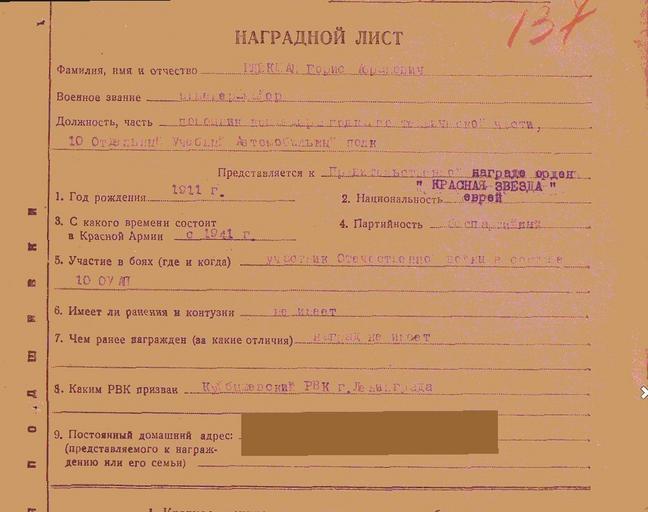 137
НАГРАДНОЙ ЛИСТ
Фамилия, имя и отчество Борис Абрамович
Военное звание инженер-майор
Должность, часть помощник командира полка по технической части,
10 Отдельный Учебный Автомобильный полк
Представляется к Правительственной награде орден
" КРАСНАЯ ЗВЕЗДА "
1. Год рождения 1911 г. 2. Национальность еврей
3. С какого времени состоит
в Красной Армии с 1941 г. 4. Партийность беспартийный
5. Участие в боях (где и когда) участник Отечественно войны в составе
10 ОУАП
6. Имеет ли ранения и контузии не имеет
7. Чем ранее награжден (за какие отличия) наград не имеет
8. Каким РВК призван Куйбышевский РВК г.Ленинграда
9. Постоянный домашний адрес:
(представляемого к награж-
дению или его семьи)
ПОДШИВКИ